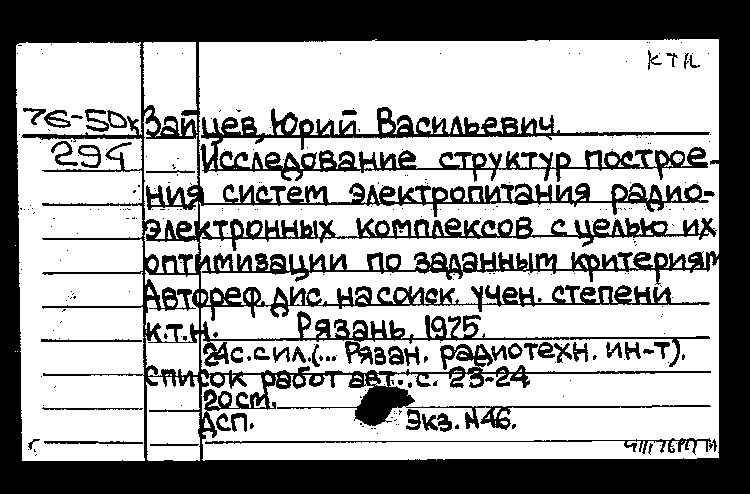 КТН
76-50к Зайцев, Юрий Васильевич.
294 Исследование структур построе-
ния систем электропитания радио-
электронных комплексов с целью их
оптимизации по заданным критериям
Автореф. дис. на соиск. учен. степени
к.т.н. Рязань, 1975.
24с. с ил. (... Рязан. радиотехн. ин-т).
Список работ авт.: с. 23-24
20 см.
ДСП. Экз. №46.